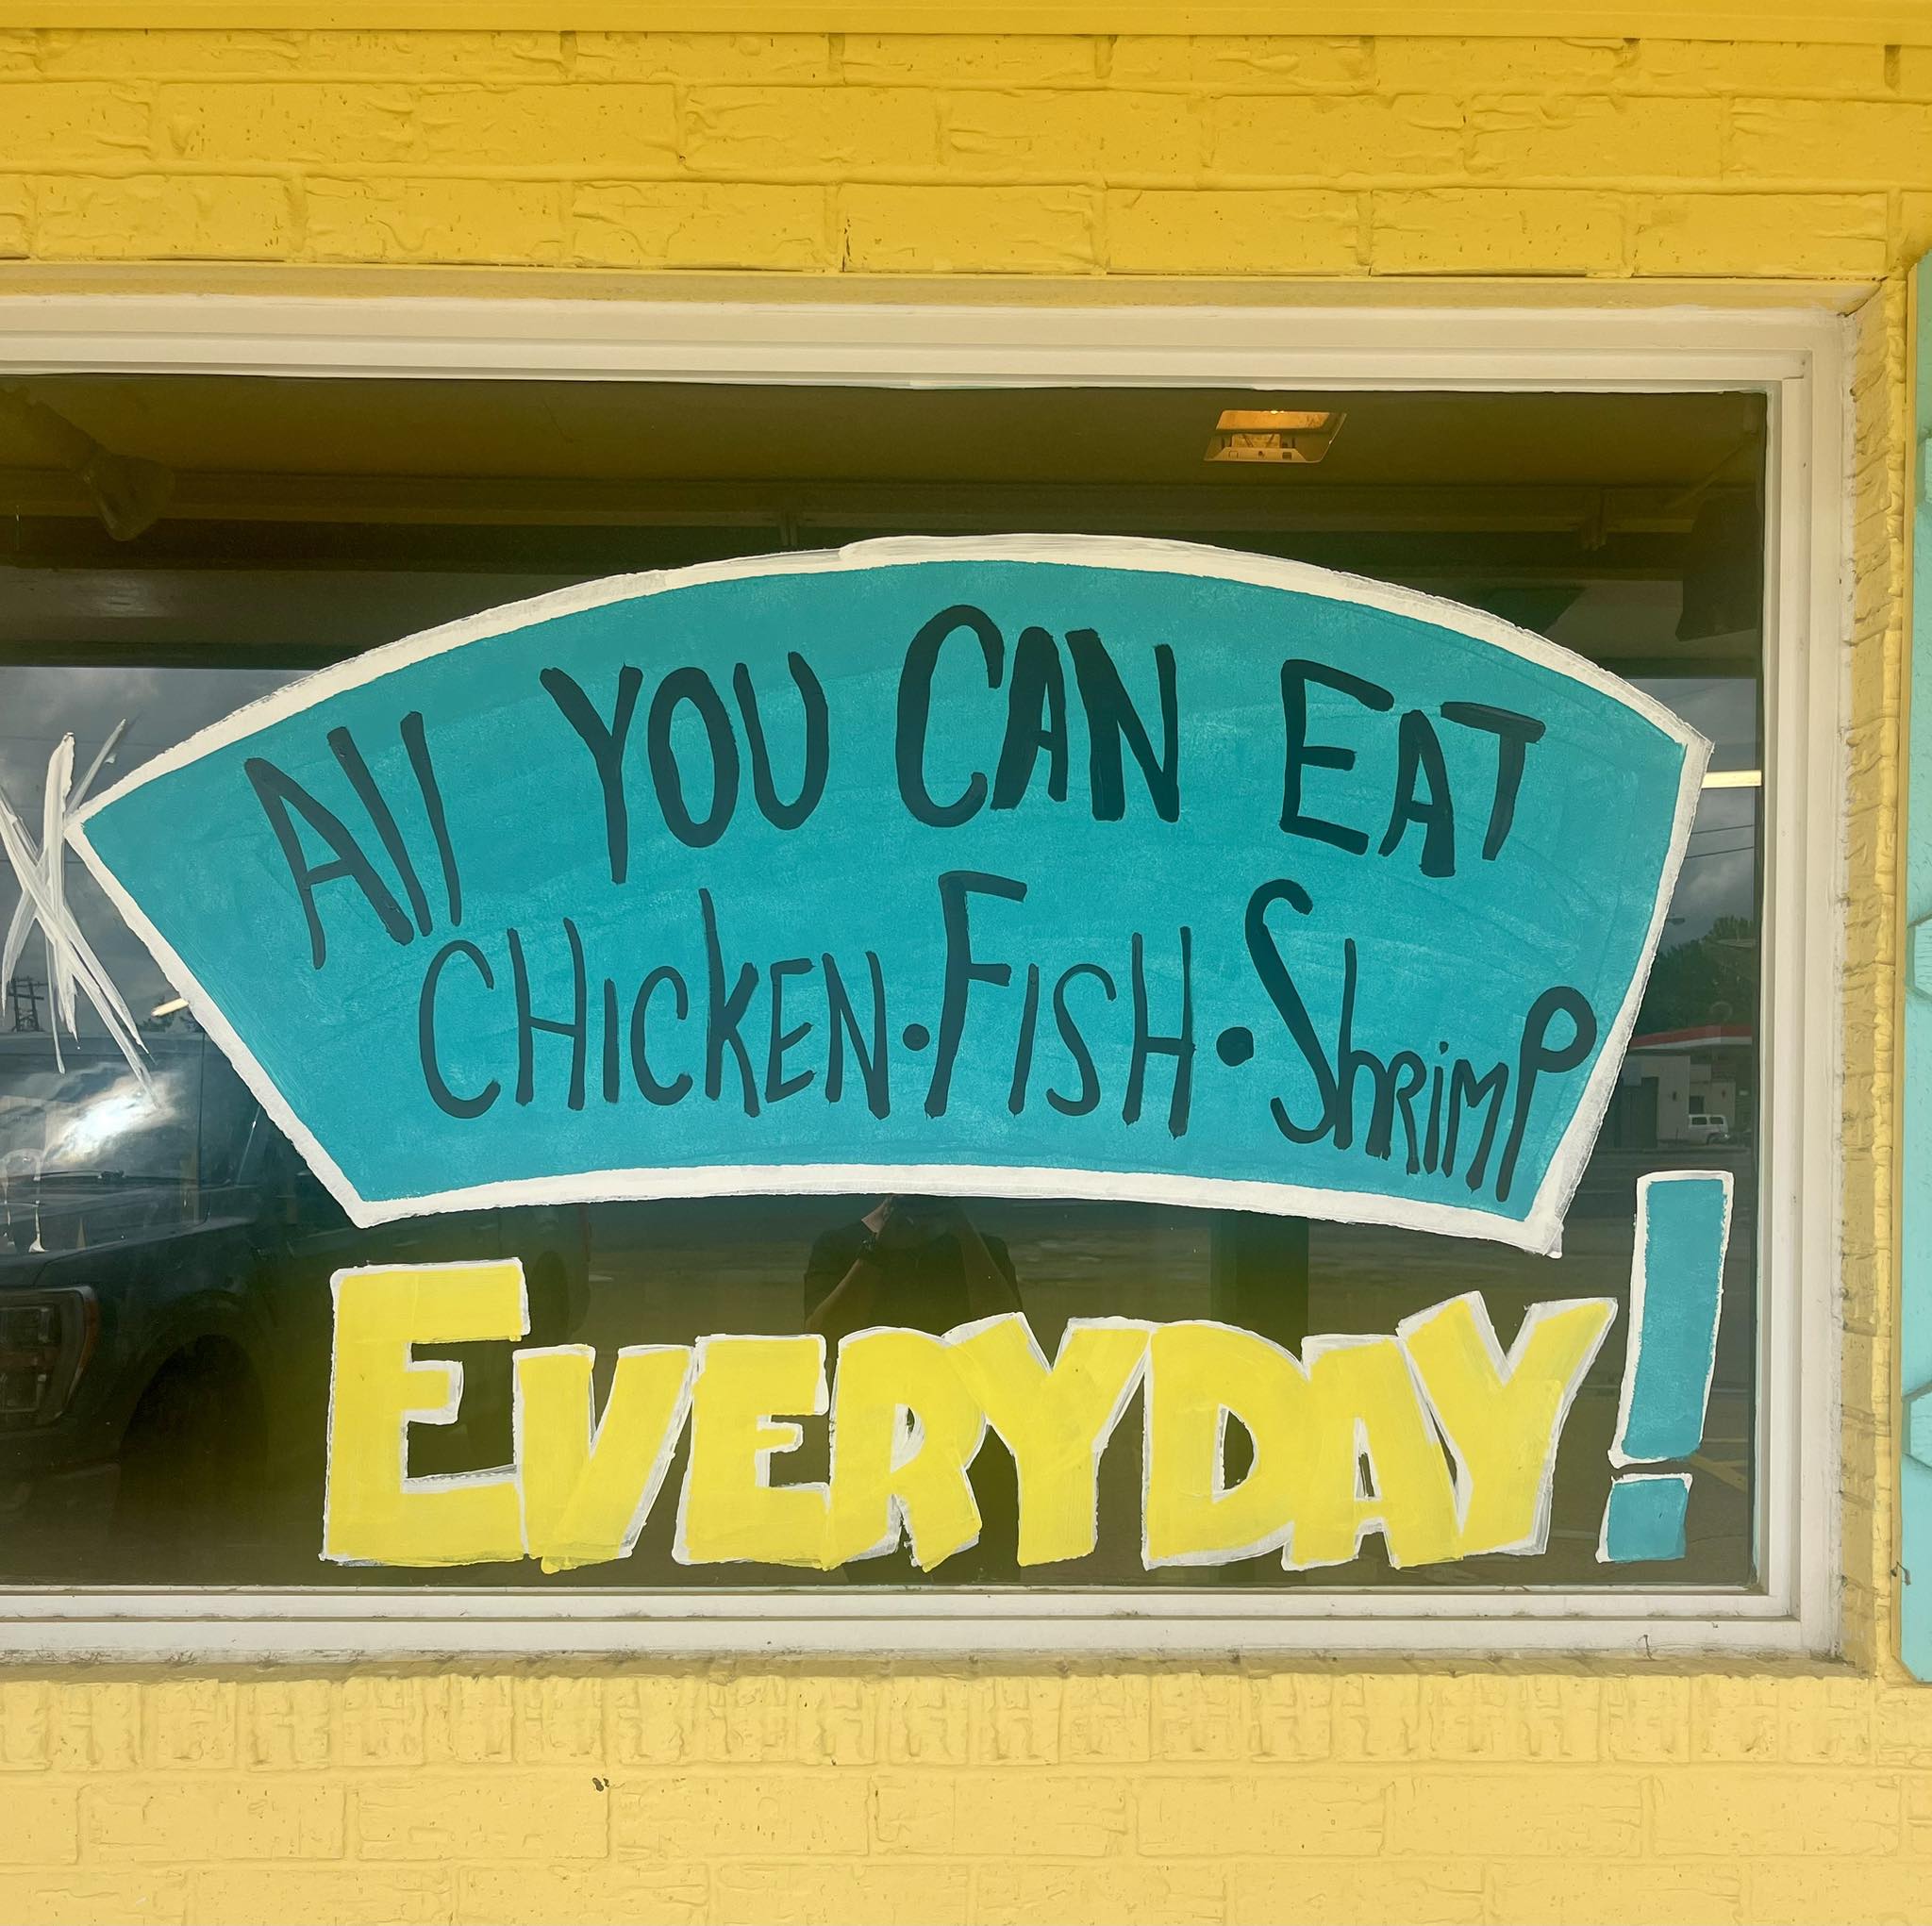 All YOU CAN EAT
CHICKEN • FISH • ShRiMP
EVERYDAY!